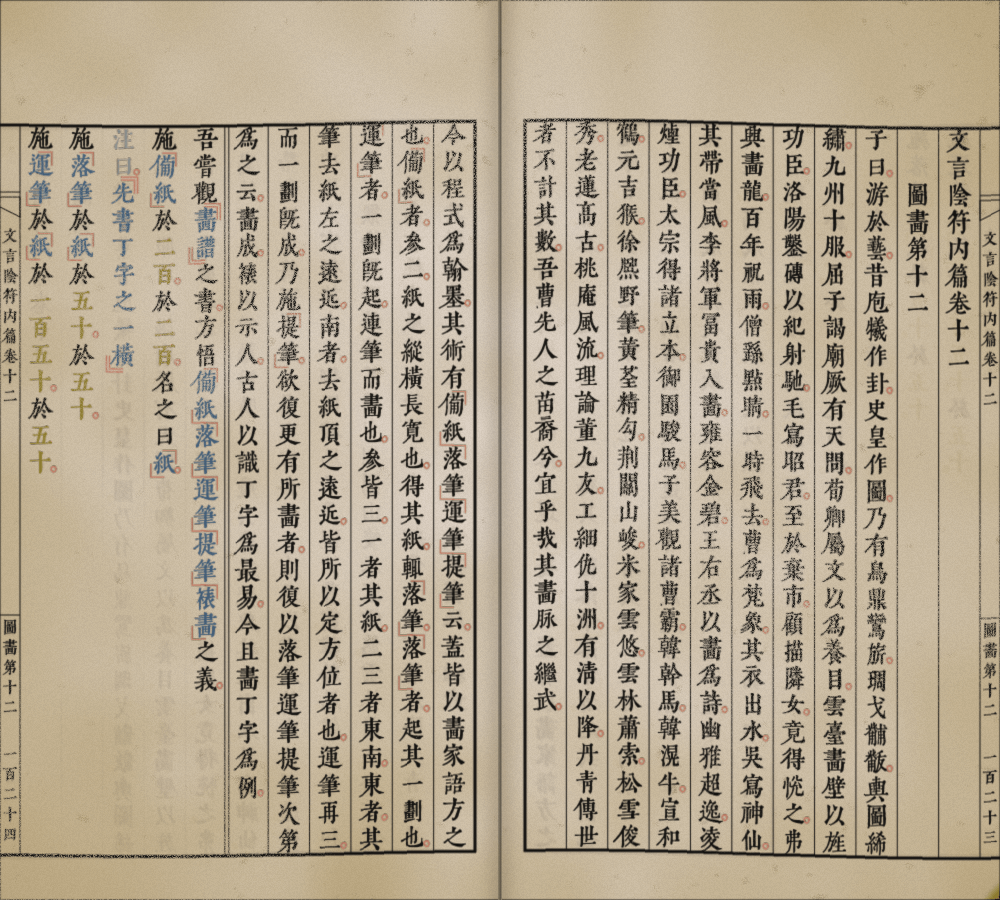 文言陰符内篇卷十二
圖畫第十二
一百二十三
文言陰符内篇卷十二
圖畫第十二
子曰。游於藝。昔庖犧作卦。史皇作圖。乃有鳥鼎鷩旂。琱戈黼黻。輿圖絺
繡。九州十服。屈子謁廟。厥有天問。荀卿屬文。以爲養目。雲臺畫壁。以旌
功臣。洛陽鑿磚。以紀射馳。毛寫昭君。至於棄市。顧描隣女。竟得恍之。弗
興畫龍。百年祝雨。僧繇點睛。一時飛去。曹爲梵象。其衣出水。吳寫神仙。
其帶當風。李將軍冨貴入畫。雍容金碧。王右丞以畫爲詩。幽雅超逸。凌
煙功臣。太宗得諸立本。御園駿馬。子美觀諸曹霸。韓幹馬。韓滉牛。宣和
鶴。元吉猴。徐熈野筆。黃荃精勾。荆關山峻。米家雲悠。雲林蕭索。松雪俊
秀。老蓮高古。桃庵風流。理論董九友。工細仇十洲。有清以降。丹青傳世
者不計其數。吾曹先人之苗裔兮。宜乎哉其畫脉之繼武。
今以程式爲翰墨。其術有『備紙』『落筆』『運筆』『提筆』云。蓋皆以畫家語方之
也。『備紙』者。參二。紙之縱橫長寬也。得其紙。輒『落筆』。『落筆』者。起其一劃也。
『運筆』者。一劃旣起。連筆而畫也。參皆三。一者其紙。二三者東南。東者。其
筆去紙左之遠近。南者。去紙頂之遠近。皆所以定方位者也。運筆再三。
而一劃旣成。乃施『提筆』。欲復更有所畫者。則復以落筆運筆提筆次第
爲之云。畫成。裱以示人。古人以識丁字爲最易。今且畫丁字爲例。
吾嘗觀『畫譜』之書。方悟『備紙』『落筆』『運筆』『提筆』『裱畫』之義。
施『備紙』於二百。於二百。名之曰『紙』。
注曰。『先書丁字之一橫』
施『落筆』於『紙』於五十。於五十。
施『運筆』於『紙』於一百五十。於五十。
文言陰符内篇卷十二
圖畫第十二
一百二十四